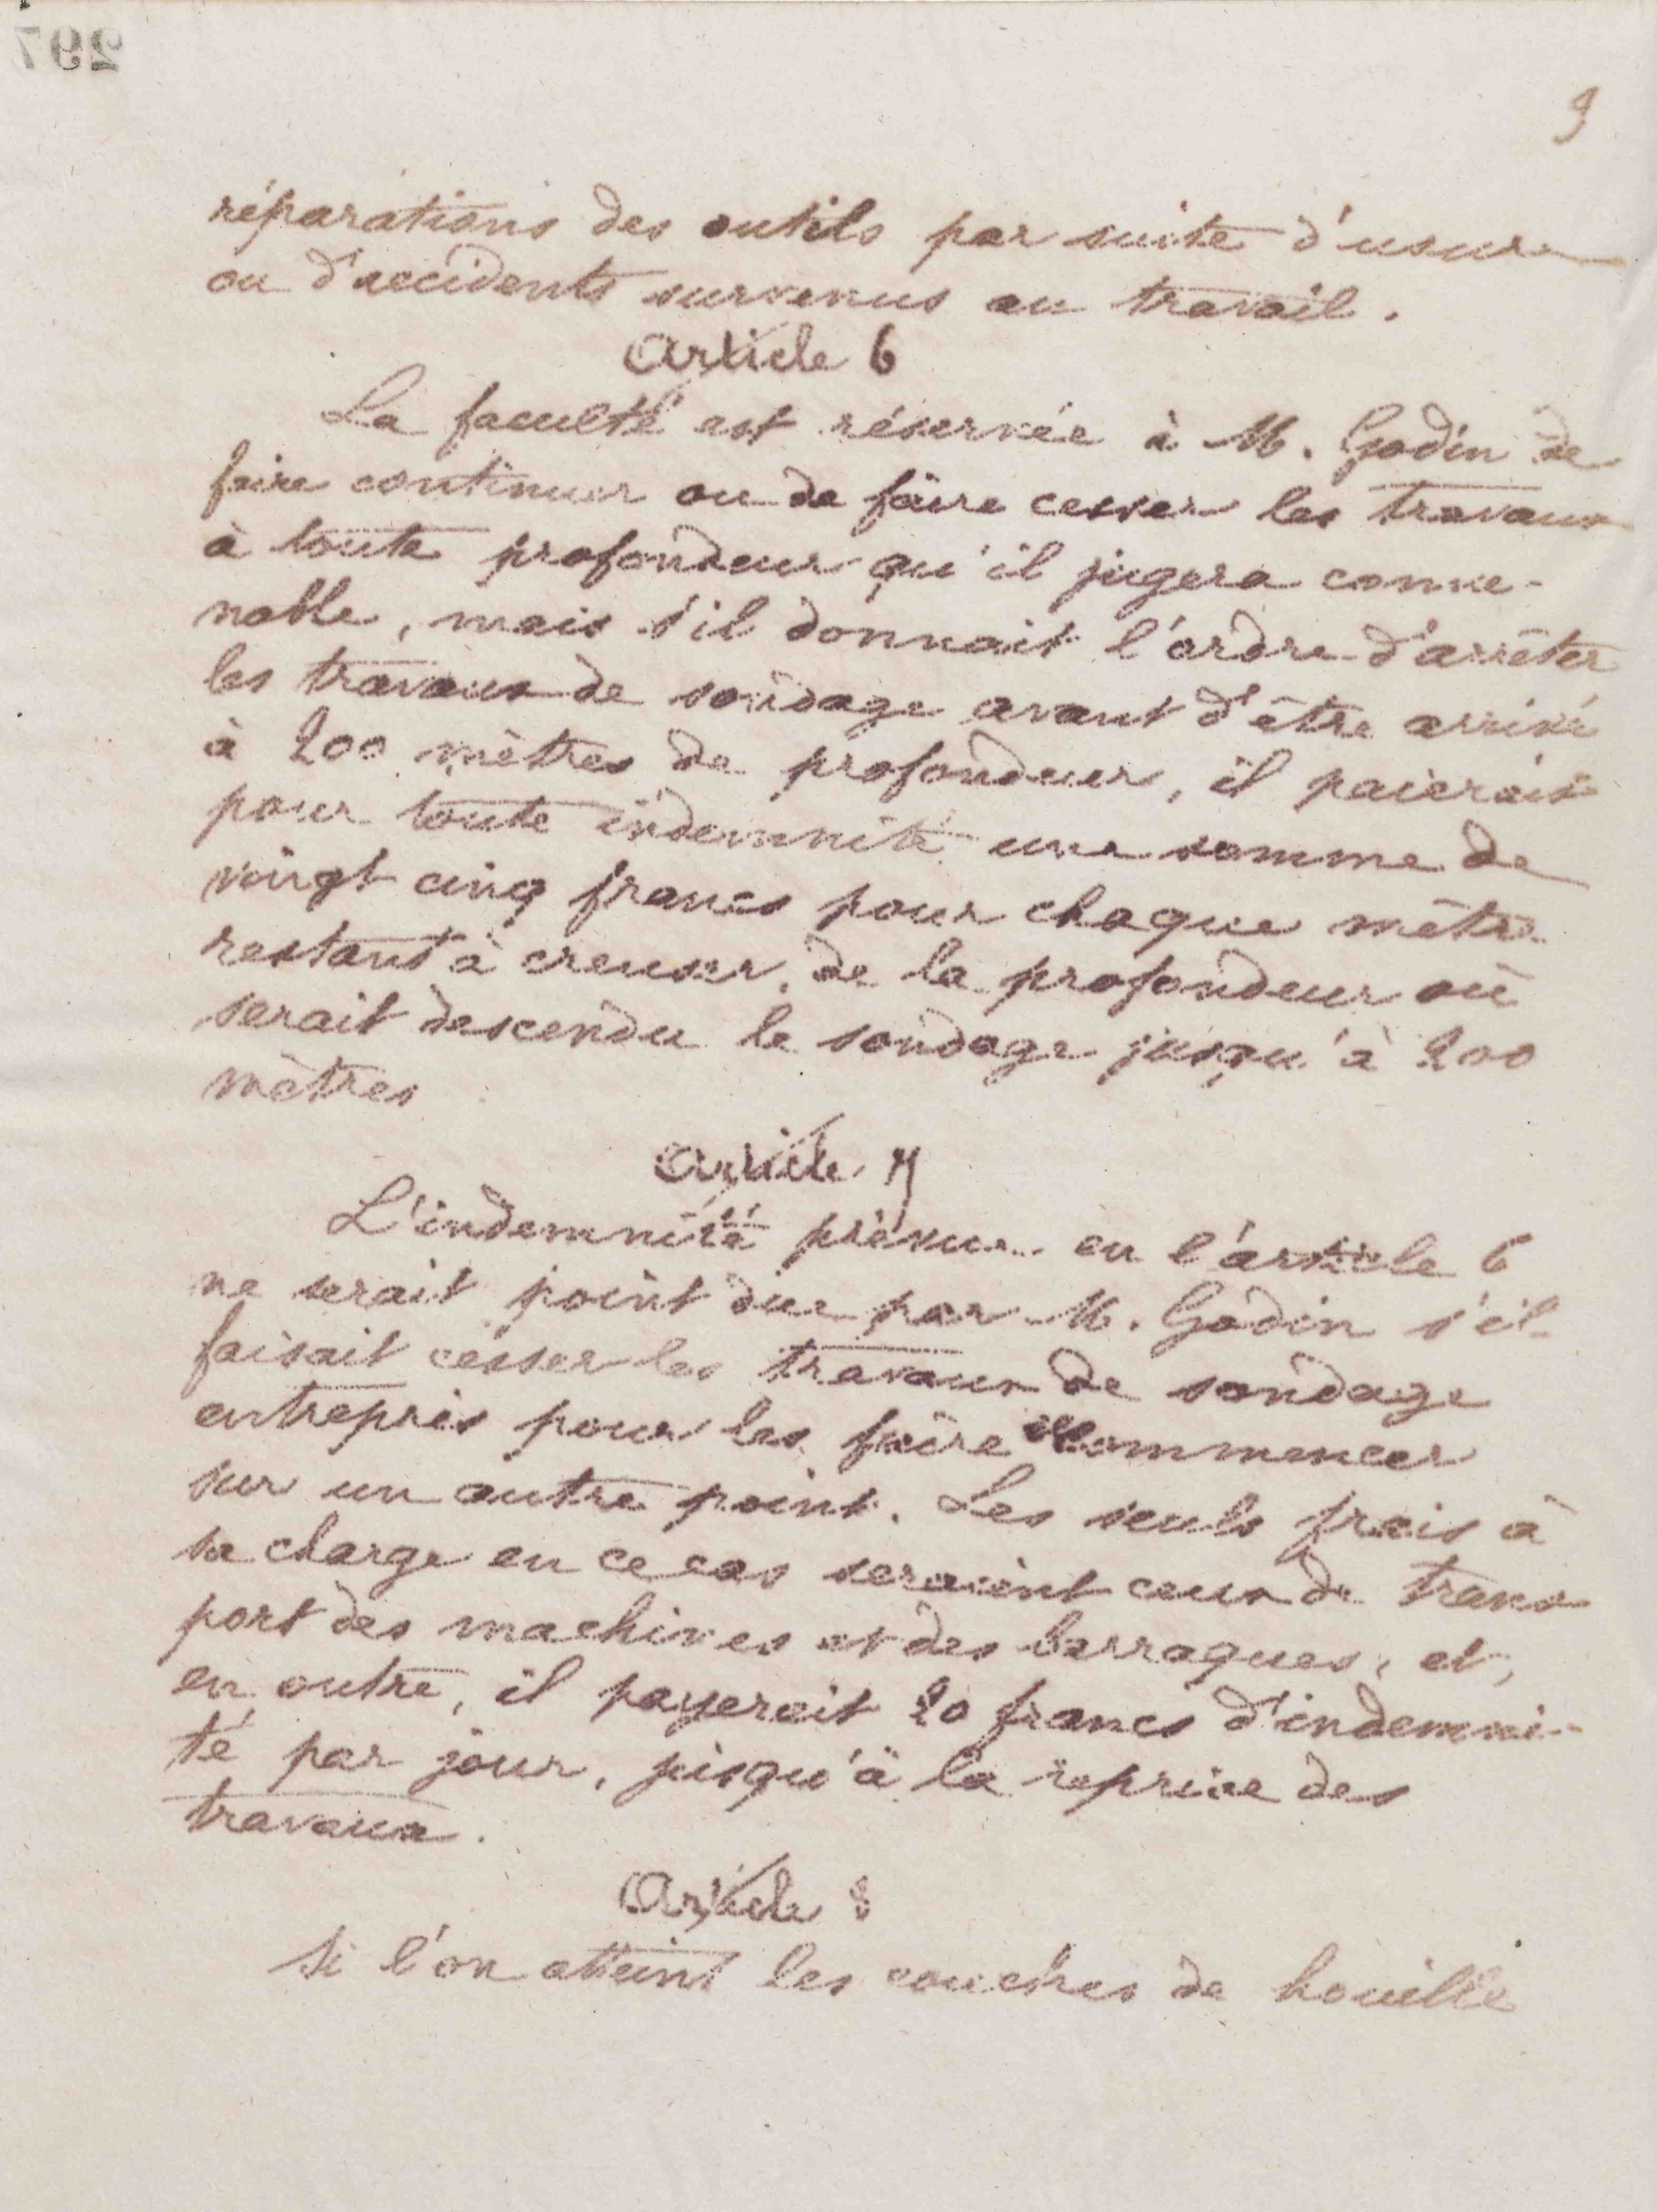 297
9
réparations des outils par suite d'usure
ou d'accidents survenus au travail.
Article 6
La faculté est réservée à M. Godin de
faire continuer ou de faire cesser les travaux
à toute profondeur qu'il jugera conve-
nable, mais s'il donnait l'ordre d'arrêter
les travaux de sondage avant d'être arrivé
à 200 mètres de profondeur, il paierait
pour toute indemnité une somme de
vingt cinq francs pour chaque mètre
restant à creuser, de la profondeur où
serait descendu le sondage jusqu'à 200
mètres
Article 7
L'indemnité prévue en l'article 6
ne serait point due par M. Godin s'il
faisait cesser les travaux de sondage
entrepris pour les faire recommencer
sur un autre point. Les seuls frais à
sa charge en ce cas seraient ceux de trans
port des machines et des barraques, et,
en outre, il payerait 20 francs d'indemni-
té par jour, jusqu'à la reprise des
travaux.
Article 8
Si l'on atteint les couches de houille